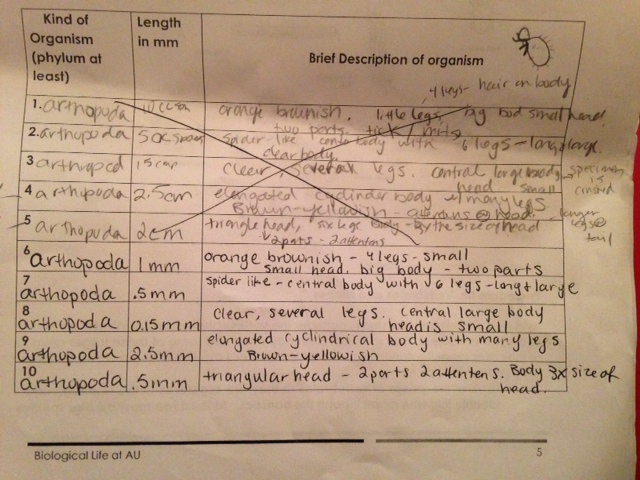 Kind of Organism (phylum at least) Length in mm Brief Description of organism
4 legs - hair on body
1. arthopoda orange brownish. little legs, big bod small head
two parts
2. arthopoda spider like body with 6 legs - long large
clear body
3 arthropod clear, several legs. central large body
head small
specimen is
4 arthopoda 2.5cm elongated cyclinder body w/ many legs
Brown-yellowish - head
longer legs @ tail
5 arthopoda 2cm triangle head, six legs body - 3x the size of head
2 parts - 2 attentens
6 arthopoda 1mm orange brownish - 4 legs - small
small head, big body - two parts
7 arthopoda .5mm spider like - central body with 6 legs - long + large
8 arthopoda 0.15mm clear, several legs. central large body
head is small
9 arthopoda 2.5mm elongated cyclindrical body with many legs
Brown-yellowish
10 arthopoda .5mm triangular head - 2 parts 2 attentens. Body 3x size of
head.
Biological Life at AU 5